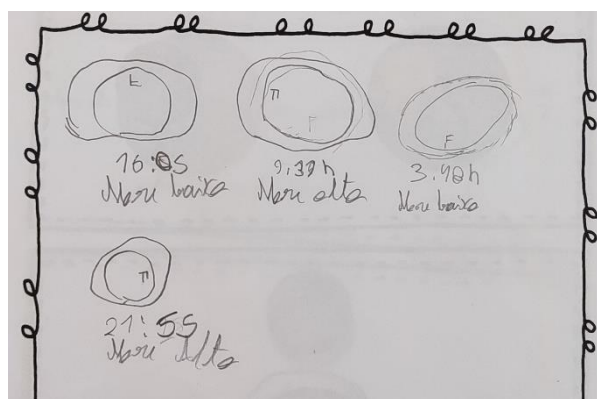 E
16:05
Mare baixa
F
9:39h
Mare alta
F
3.40h
Mare baixa
F
21:55
Mare Alta